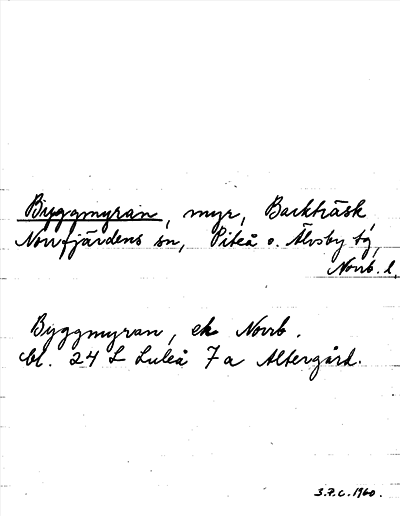 Byggmyran, myr, Backträsk,
Norrfjärdens sn, Piteå o. Älvsby tg,
Norrb. l.
Byggmyran, ek Norrb.
bl. 24 L Luleå 7a Altergård.
3.7.C.1960.